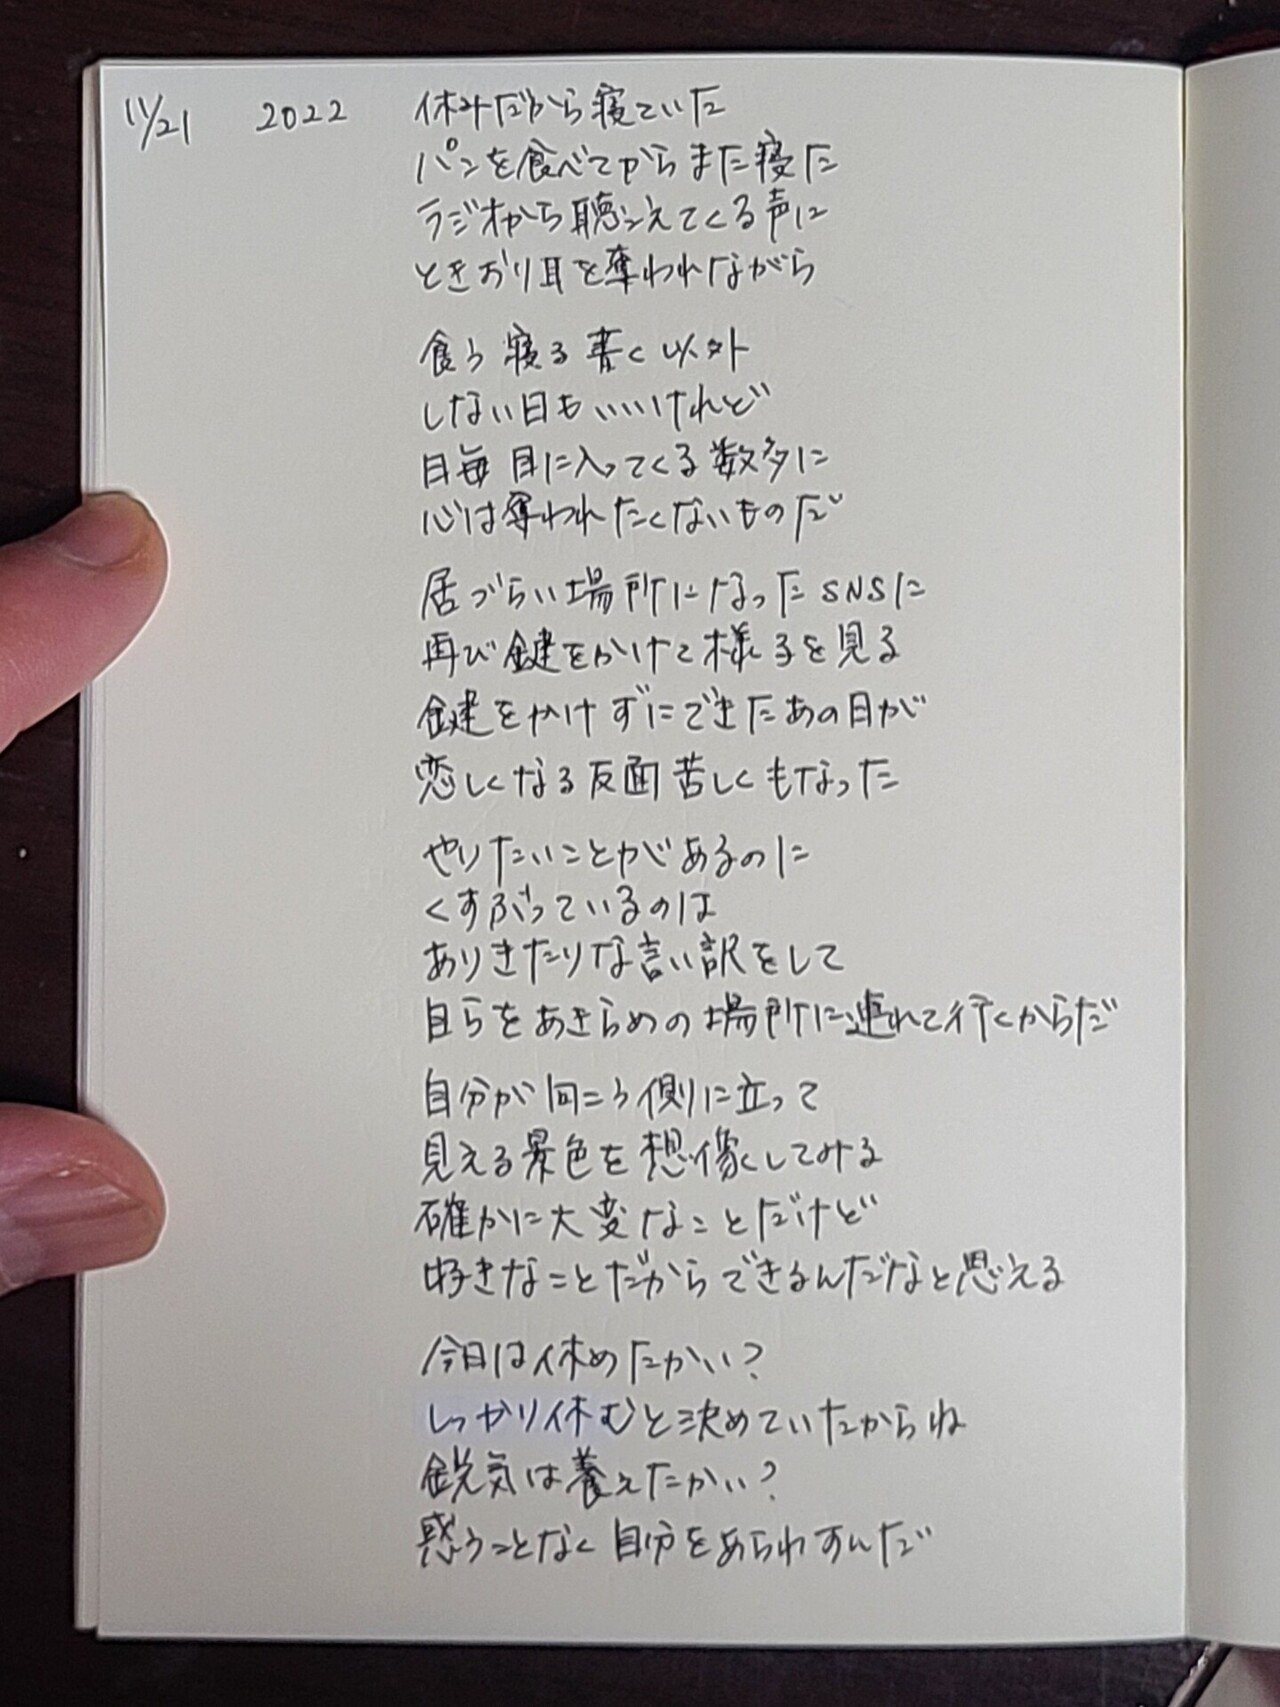 11/21 2022 休みだから寝ていた
パンを食べてからまた寝た
ラジオから聴こえてくる声に
ときおり耳を奪われながら
食う寝る書く以外
しない日もいいけれど
日毎目に入ってくる数多に
心は奪われたくないものだ
居づらい場所になったSNSに
再び鍵をかけて様子を見る
鍵をかけずにできたあの日が
恋しくなる反面苦しくもなった
やりたいことがあるのに
くすぶっているのは
ありきたりな言い訳をして
自らをあきらめの場所に連れて行くからだ
自分が向こう側に立って
見える景色を想像してみる
確かに大変なことだけど
好きなことだからできるんだなと思える
今日は休めたかい?
しっかり休むと決めていたからね
鋭気は養えたかい?
惑うことなく自分をあらわすんだ